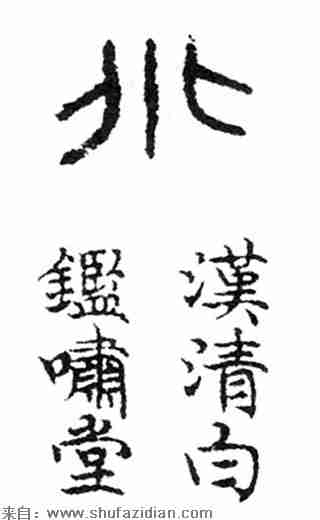 漢清白
鑑嘯堂
来自：www.shufazidian.com